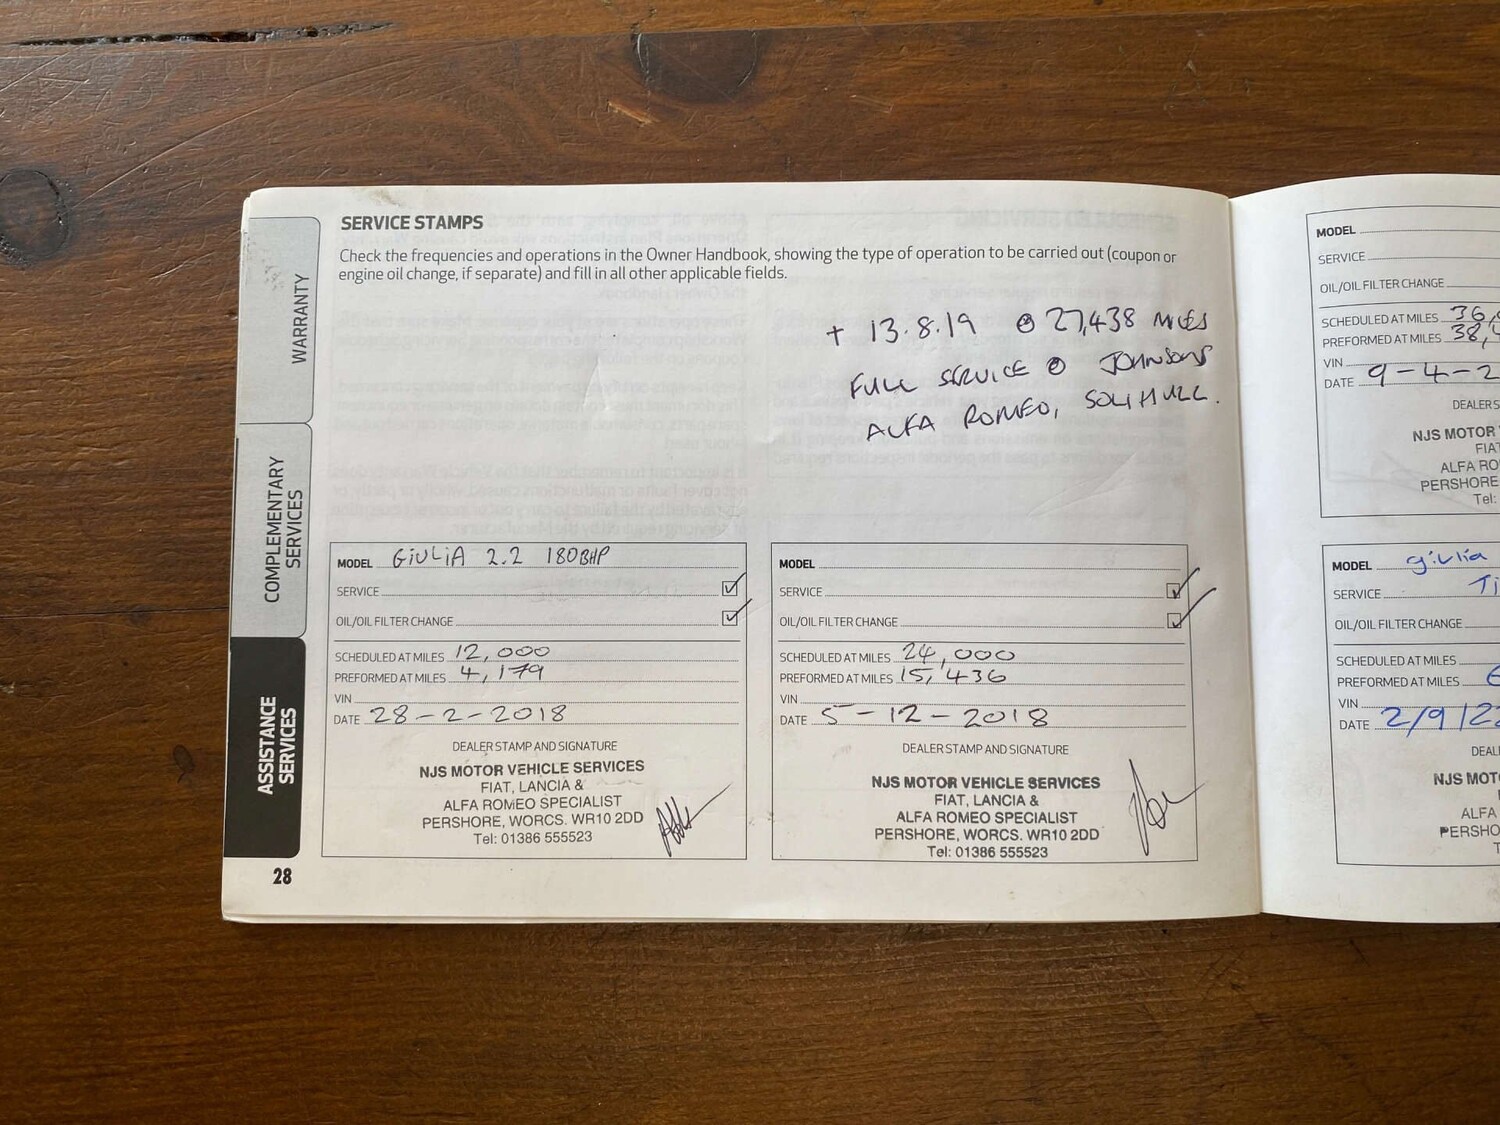 SERVICE STAMPS
Check the frequencies and operations in the Owner Handbook, showing the type of operation to be carried out (coupon or
engine oil change, if separate) and fill in all other applicable fields.
+ 13.8.19 @ 27,438 MILES
FULL SERVICE @ JOHNSONS
ALFA ROMEO, SOLIHULL.
WARRANTY
COMPLEMENTARY
SERVICES
ASSISTANCE
SERVICES
MODEL GIULIA 2.2 180BHP
SERVICE
OIL/OIL FILTER CHANGE
SCHEDULED AT MILES 12,000
PREFORMED AT MILES 4,179
VIN
DATE 28-2-2018
DEALER STAMP AND SIGNATURE
NJS MOTOR VEHICLE SERVICES
FIAT, LANCIA &
ALFA ROMEO SPECIALIST
PERSHORE, WORCS. WR10 2DD
Tel: 01386 555523
MODEL
SERVICE
OIL/OIL FILTER CHANGE
SCHEDULED AT MILES 24,000
PREFORMED AT MILES 15,436
VIN
DATE 5-12-2018
DEALER STAMP AND SIGNATURE
NJS MOTOR VEHICLE SERVICES
FIAT, LANCIA &
ALFA ROMEO SPECIALIST
PERSHORE, WORCS. WR10 2DD
Tel: 01386 555523
28
MODEL
SERVICE
OIL/OIL FILTER CHANGE
SCHEDULED AT MILES 36,
PREFORMED AT MILES 38,
VIN
DATE 9-4-2
DEALER S
NJS MOTOR
FIA
ALFA RO
PERSHORE
Tel:
MODEL giulia
SERVICE Ti
OIL/OIL FILTER CHANGE
SCHEDULED AT MILES
PREFORMED AT MILES 6
VIN
DATE 2/9/22
DEAL
NJS MOT
ALFA
PERSHO
T